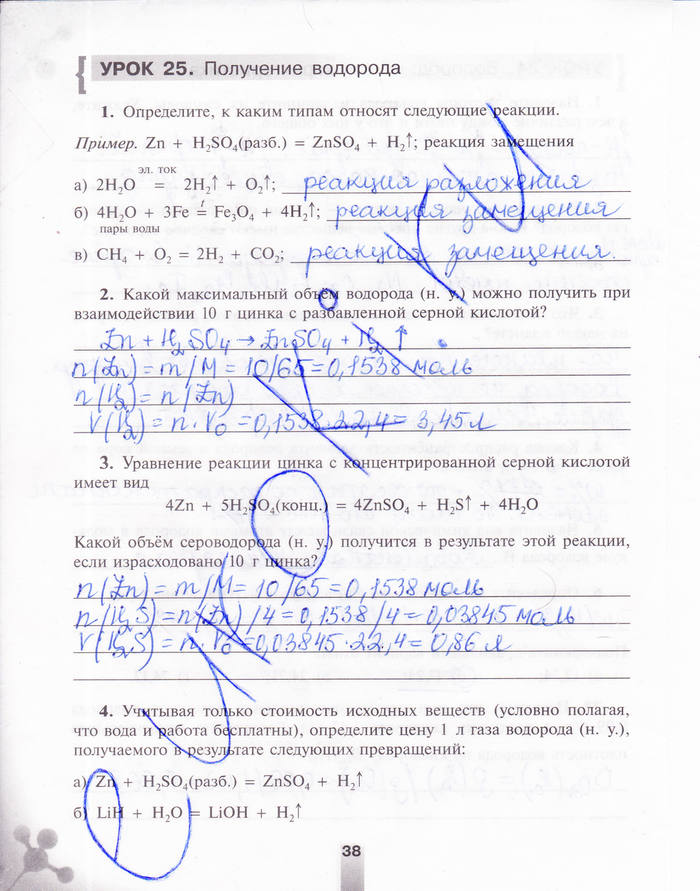 УРОК 25. Получение водорода
1. Определите, к каким типам относят следующие реакции.
Пример. Zn + H₂SO₄(разб.) = ZnSO₄ + H₂↑; реакция замещения
эл. ток
а) 2H₂O = 2H₂↑ + O₂↑; реакция разложения
t
б) 4H₂O + 3Fe = Fe₃O₄ + 4H₂↑; реакция замещения
пары воды
в) CH₄ + O₂ = 2H₂ + CO₂; реакция замещения.
2. Какой максимальный объём водорода (н. у.) можно получить при
взаимодействии 10 г цинка с разбавленной серной кислотой?
Zn + H₂SO₄ → ZnSO₄ + H₂ ↑
n(Zn) = m/M = 10/65 = 0,1538 моль
n(H₂) = n(Zn)
V(H₂) = n · V₀ = 0,1538 · 22,4 = 3,45 л
3. Уравнение реакции цинка с концентрированной серной кислотой
имеет вид
4Zn + 5H₂SO₄(конц.) = 4ZnSO₄ + H₂S↑ + 4H₂O
Какой объём сероводорода (н. у.) получится в результате этой реакции,
если израсходовано 10 г цинка?
n(Zn) = m/M = 10/65 = 0,1538 моль
n(H₂S) = n(Zn)/4 = 0,1538/4 = 0,03845 моль
V(H₂S) = n · V₀ = 0,03845 · 22,4 = 0,86 л
4. Учитывая только стоимость исходных веществ (условно полагая,
что вода и работа бесплатны), определите цену 1 л газа водорода (н. у.),
получаемого в результате следующих превращений:
а) Zn + H₂SO₄(разб.) = ZnSO₄ + H₂↑
б) LiH + H₂O = LiOH + H₂↑
38